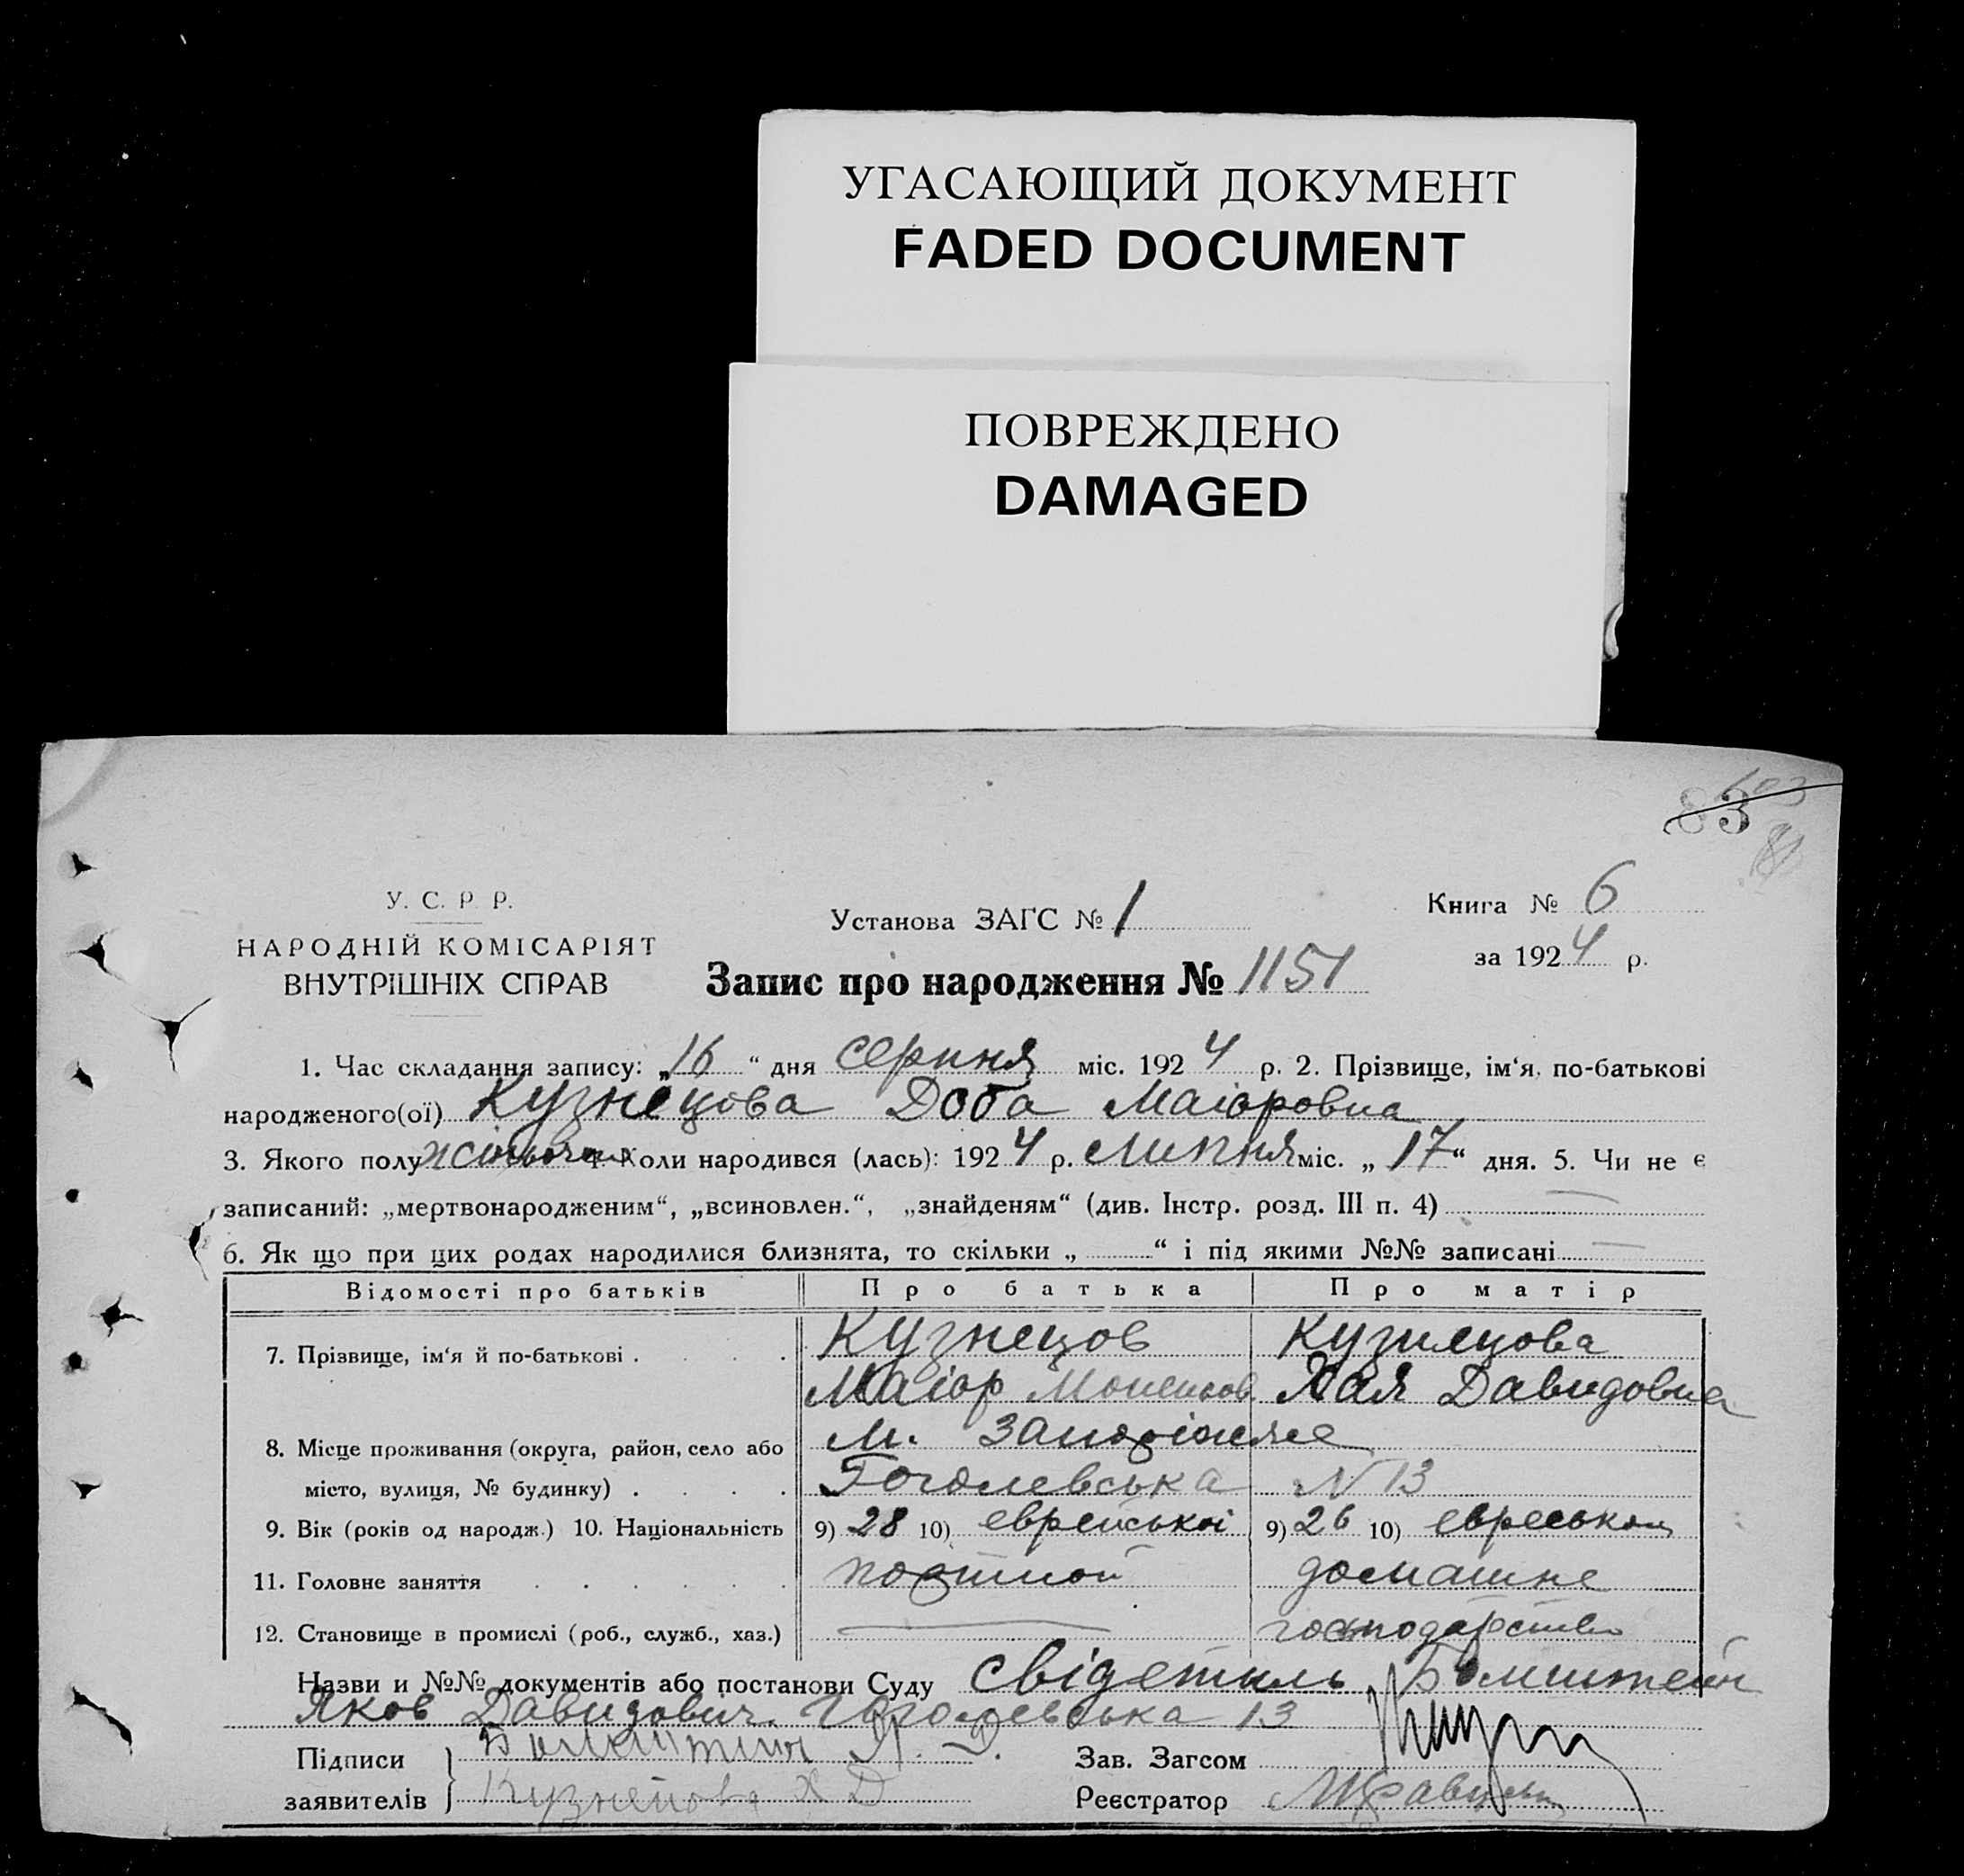 УГАСАЮЩИЙ ДОКУМЕНТ
FADED DOCUMENT
ПОВРЕЖДЕНО
DAMAGED
83
У. С. Р. Р.
НАРОДНІЙ КОМІСАРІЯТ
ВНУТРІШНІХ СПРАВ
Установа ЗАГС № 1
Книга № 6
за 1924 р.
Запис про народження № 1151
1. Час складання запису: „16“ дня серпня міс. 1924 р. 2. Прізвище, ім‘я, по-батькові
народженого(ої) Кузнецова Доба Маіоровна
3. Якого полу жіночого 4. Коли народився (лась): 1924 р. липня міс. „17“ дня. 5. Чи не є
записаний: „мертвонародженим“, „всиновлен.“, „знайденям“ (див. Інстр. розд. III п. 4) —
6. Як що при цих родах народилися близнята, то скільки „ “ і під якими №№ записані —
Відомості про батьків Про батька Про матір
7. Прізвище, ім‘я й по-батькові . . . . Кузнецов Кузнецова
Маіор Хая Давидовна
8. Місце проживання (округа, район, село або м. Запоріжже
місто, вулиця, № будинку) . . . . Гоголевська N 13
9. Вік (років од народж.) 10. Національність 9) 28 10) еврейської 9) 26 10)
11. Головне заняття . . . . . . портной домашне
12. Становище в промислі (роб., служб., хаз.) — господарство
Назви и №№ документів або постанови Суду свідетиль Бомштейн
Яков Давидович. Гоголевська 13
Підписи Я. Д. Зав. Загсом
заявителів Кузнецова Х Д Реєстратор